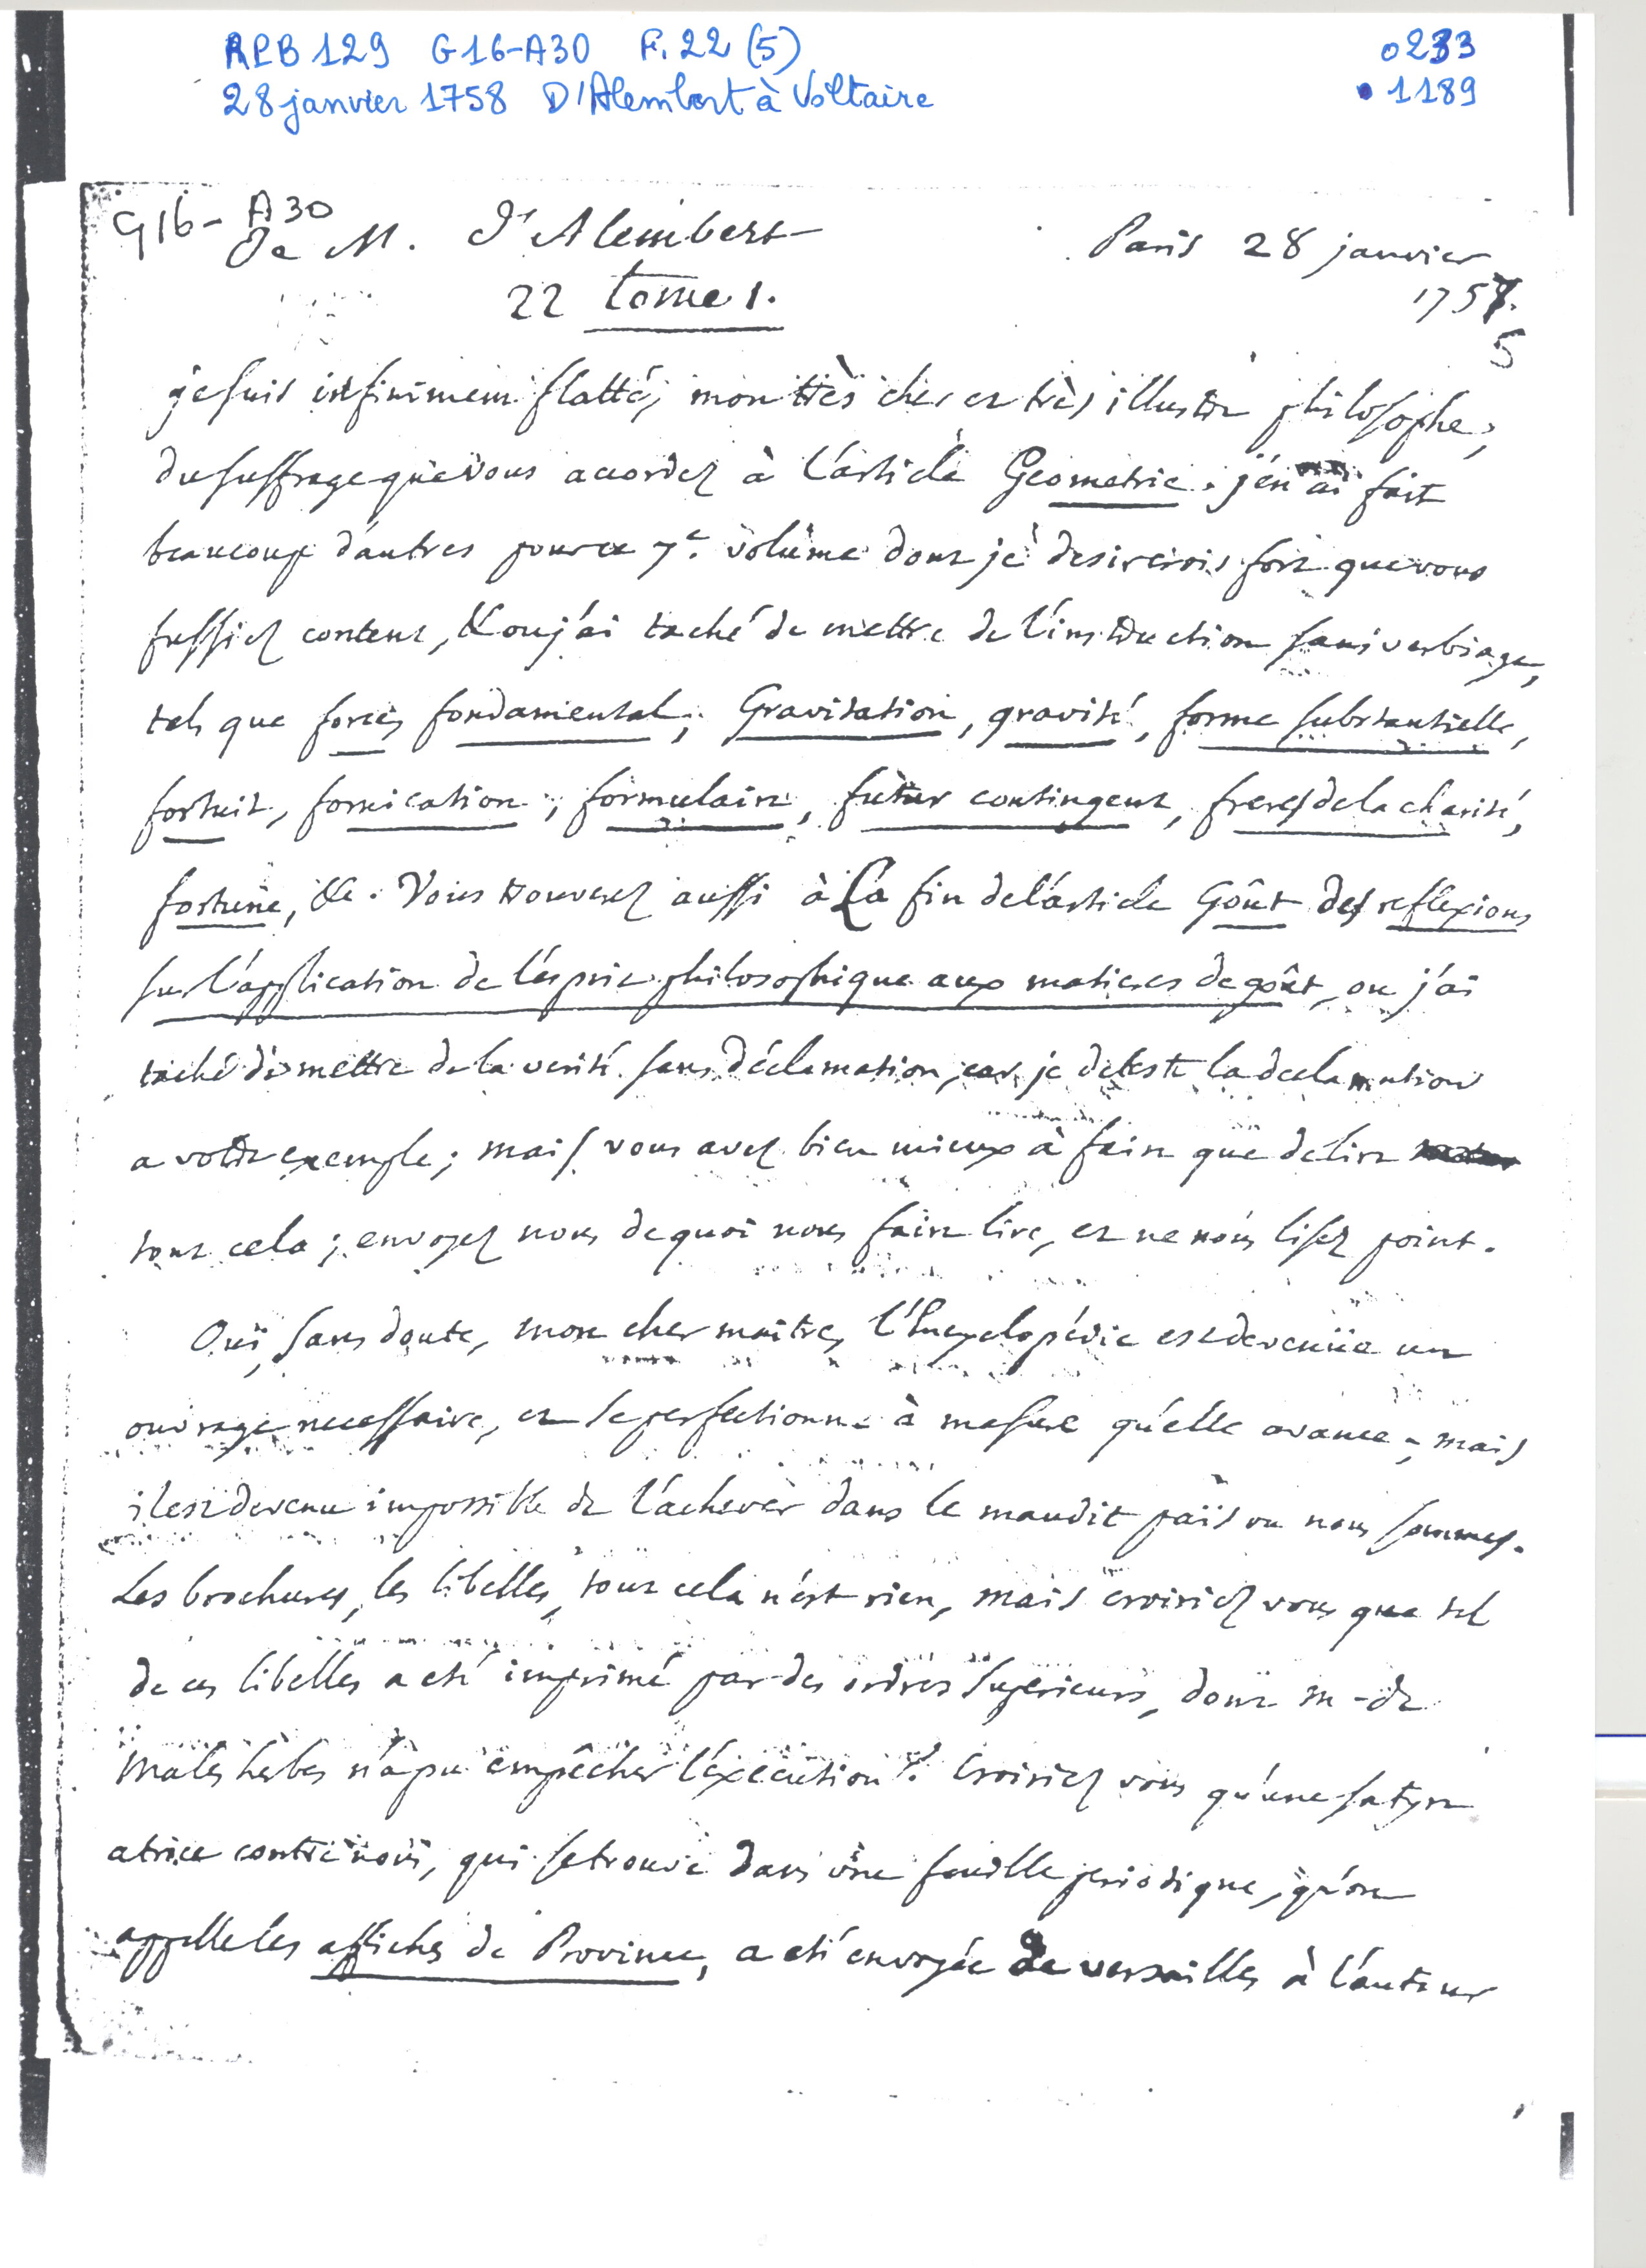 RPB 129 G16-A30 F. 22 (5)
0233
28 janvier 1758 D'Alembert à Voltaire
1189
G16- A30
De M. d'Alembert
Paris 28 janvier
22 tome 1.
1757.
5
je suis infiniment flatté, mon très cher et très illustre philosophe,
du suffrage que vous accordez à l'article Geometrie. j'en ai fait
beaucoup d'autres pour ce 7e. volume dont je desirerois fort que vous
fussiez content, & ou j'ai taché de mettre de l'instruction sans verbiage,
tels que forces, fondamental, Gravitation, gravité, forme substantielle,
fortuit, fornication, formulaire, futur contingent, freres de la charité,
fortune, &c. Vous trouverez aussi à La fin de l'article Goût des reflexions
sur l'application de l'esprit philosophique aux matieres de goût, ou j'ai
taché de mettre de la verité sans déclamation, car je deteste la declamation
a votre exemple; mais vous avez bien mieux à faire que de lire
tout cela; envoyez nous de quoi nous faire lire, et ne nous lisez point.
Oui, sans doute, mon cher maitre, l'Encyclopédie est devenüe un
ouvrage necessaire, et se perfectionne à mesure qu'elle avance; mais
il est devenu impossible de l'achever dans le maudit païs ou nous sommes.
Les brochures, les libelles, tout cela n'est rien, mais croiriez vous que tel
de ces libelles a eté imprimé par des ordres superieurs, dont m. de
Malesherbes n'a pu empêcher l'exécution? Croiriez vous qu'une satyre
atroce contre nous, qui se trouve dans une feuille periodique, qu'on
appelle les affiches de Province, a eté envoyée de versailles à l'auteur